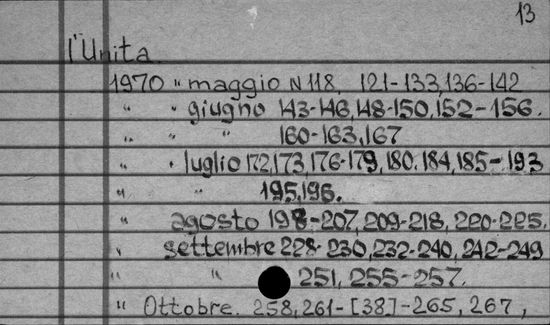 13
l'Unita
1970 " maggio N 118. 121-133,136-142
" " giugno 143-146,148-150,152-156.
" " " 160-163,167
" " luglio 172,173,176-179,180.184,185-193
" " 195,196.
" agosto 198-207,209-218,220-225.
" settembre 228-230,232-240,242-249
" " 251, 255-257.
" Ottobre. 258,261-[38]-265, 267,